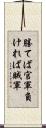 勝てば官軍負
ければ賊軍